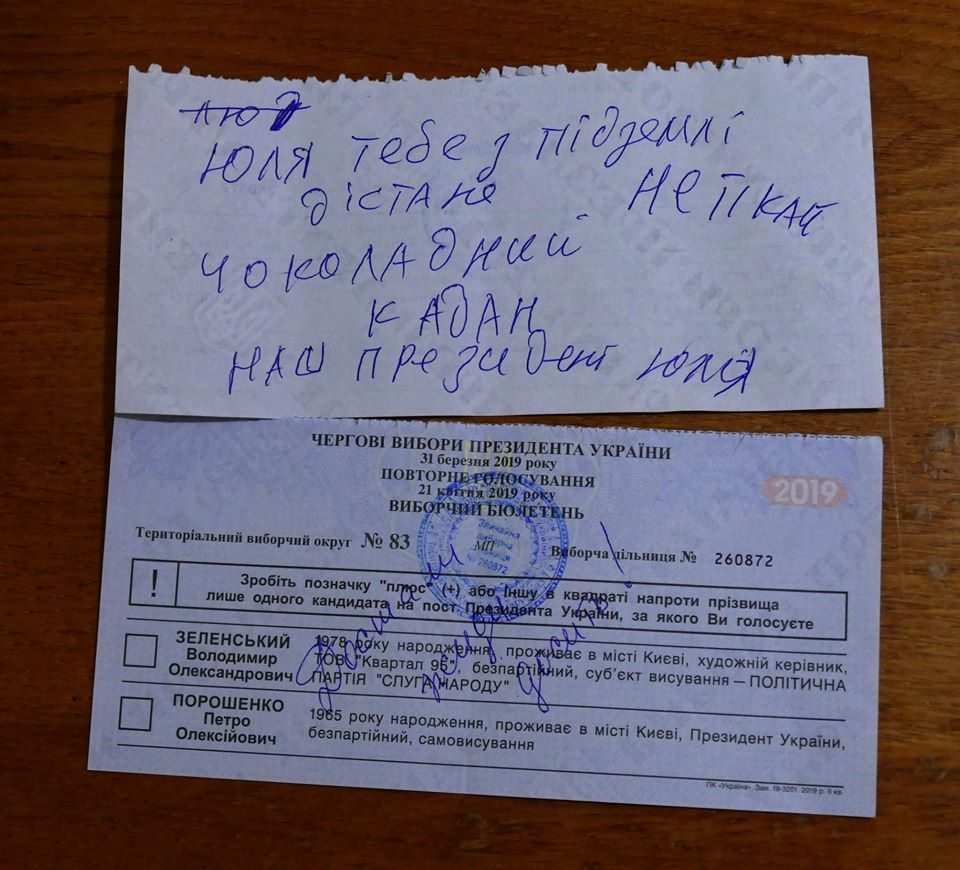 ЮЛЯ тебе з підземлі
дістане НЕ ТІКАЙ
ЧОКОЛАДНИЙ
КАДАН
НАШ президент Юлія
ЧЕРГОВІ ВИБОРИ ПРЕЗИДЕНТА УКРАЇНИ
31 березня 2019 року
ПОВТОРНЕ ГОЛОСУВАННЯ
21 квітня 2019 року
ВИБОРЧИЙ БЮЛЕТЕНЬ
2019
Територіальний виборчий округ № 83
МП
Виборча дільниця № 260872
Звичайна
виборча
дільниця
№ 260872
! Зробіть позначку "плюс" (+) або іншу в квадраті напроти прізвища
лише одного кандидата на пост Президента України, за якого Ви голосуєте
ЗЕЛЕНСЬКИЙ
Володимир
Олександрович
1978 року народження, проживає в місті Києві, художній керівник,
ТОВ "Квартал 95", безпартійний, суб'єкт висування – ПОЛІТИЧНА
ПАРТІЯ "СЛУГА НАРОДУ"
ПОРОШЕНКО
Петро
Олексійович
1965 року народження, проживає в місті Києві, Президент України,
безпартійний, самовисування
ПК «Україна», Зам. 19-3201. 2019 р. ІІ кв.